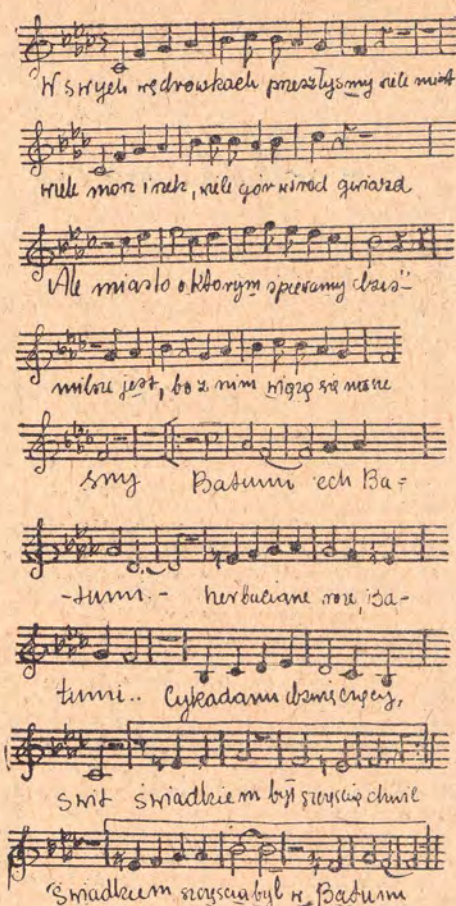 W swych wędrowkach przeszłyśmy wiele miast
wiele morz i rzek, wiele gór wśrod gwiazd
Ale miasto o ktorym śpiewamy dziś -
milsze jest, bo z nim wiążą się nasze
sny Batumi ech Ba-
-tumi.- herbaciane róże, Ba-
tumi.. Cykadami dzwięczący,
swit świadkiem był szczęścia chwil
Świadkiem szczęścia był w Batumi